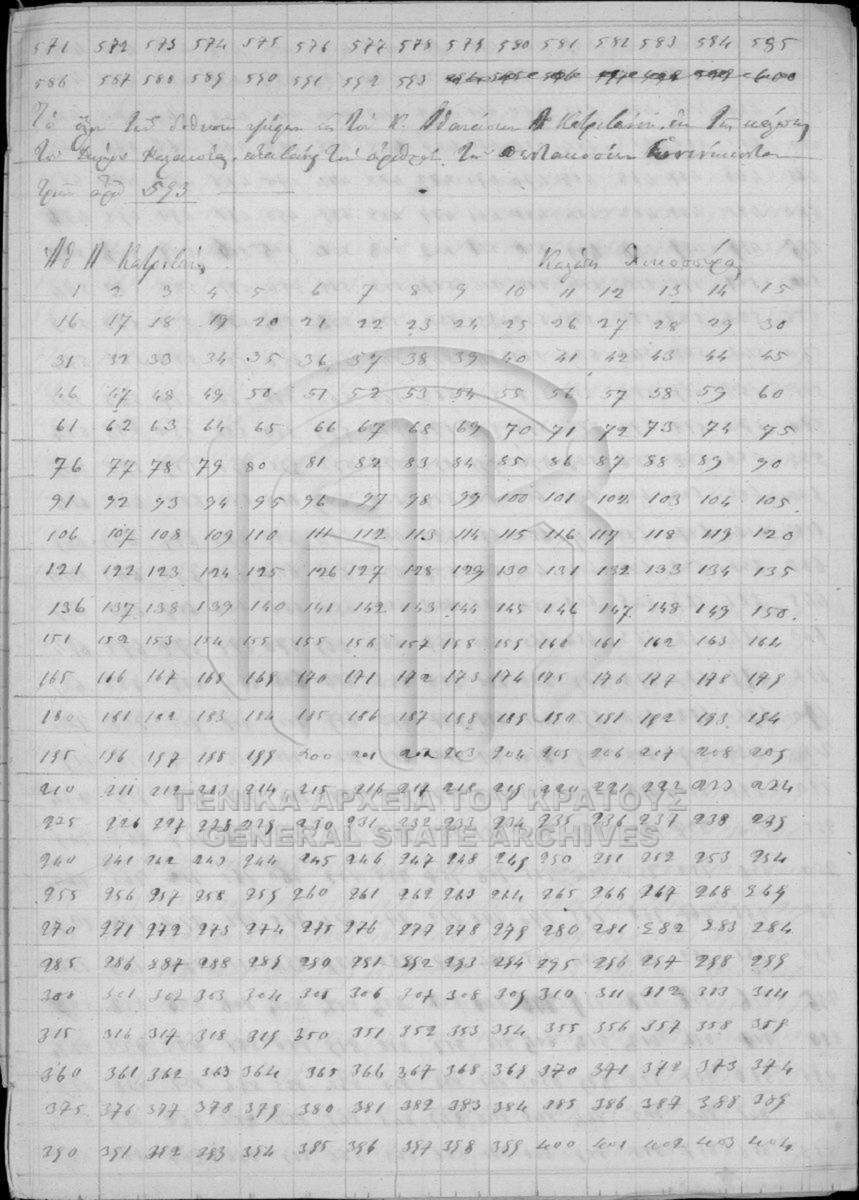 571 572 573 574 575 576 577 578 579 580 581 582 583 584 585
586 587 588 589 590 591 592 593
Το τῶν ψήφων εἰς τὸν Κ. Ἀθανάσιον Α
τοῦ Δήμου τὸν ἀριθμὸν τῶν πεντακοσίων ἐννενήκοντα
τριῶν ἀρθ 593
Αθ Α Κάλπη
1 2 3 4 5 6 7 8 9 10 11 12 13 14 15
16 17 18 19 20 21 22 23 24 25 26 27 28 29 30
31 32 33 34 35 36 37 38 39 40 41 42 43 44 45
46 47 48 49 50 51 52 53 54 55 56 57 58 59 60
61 62 63 64 65 66 67 68 69 70 71 72 73 74 75
76 77 78 79 80 81 82 83 84 85 86 87 88 89 90
91 92 93 94 95 96 97 98 99 100 101 102 103 104 105
106 107 108 109 110 111 112 113 114 115 116 117 118 119 120
121 122 123 124 125 126 127 128 129 130 131 132 133 134 135
136 137 138 139 140 141 142 143 144 145 146 147 148 149 150
151 152 153 154 155 155 156 157 158 159 160 161 162 163 164
165 166 167 168 169 170 171 172 173 174 175 176 177 178 179
180 181 182 183 184 185 186 187 188 189 190 191 192 193 194
195 196 197 198 199 200 201 202 203 204 205 206 207 208 209
210 211 212 213 214 215 216 217 218 219 220 221 222 223 224
ΓΕΝΙΚΑ ΑΡΧΕΙΑ ΤΟΥ ΚΡΑΤΟΥΣ
225 226 227 228 229 230 231 232 233 234 235 236 237 238 239
GENERAL STATE ARCHIVES
240 241 242 243 244 245 246 247 248 249 250 251 252 253 254
255 256 257 258 259 260 261 262 263 264 265 266 267 268 269
270 271 272 273 274 275 276 277 278 279 280 281 282 283 284
285 286 287 288 289 290 291 292 293 294 295 296 297 298 299
300 301 302 303 304 305 306 307 308 309 310 311 312 313 314
315 316 317 318 319 350 351 352 353 354 355 356 357 358 359
360 361 362 363 364 365 366 367 368 369 370 371 372 373 374
375 376 377 378 379 380 381 382 383 384 385 386 387 388 389
390 391 392 393 394 395 396 397 398 399 400 401 402 403 404